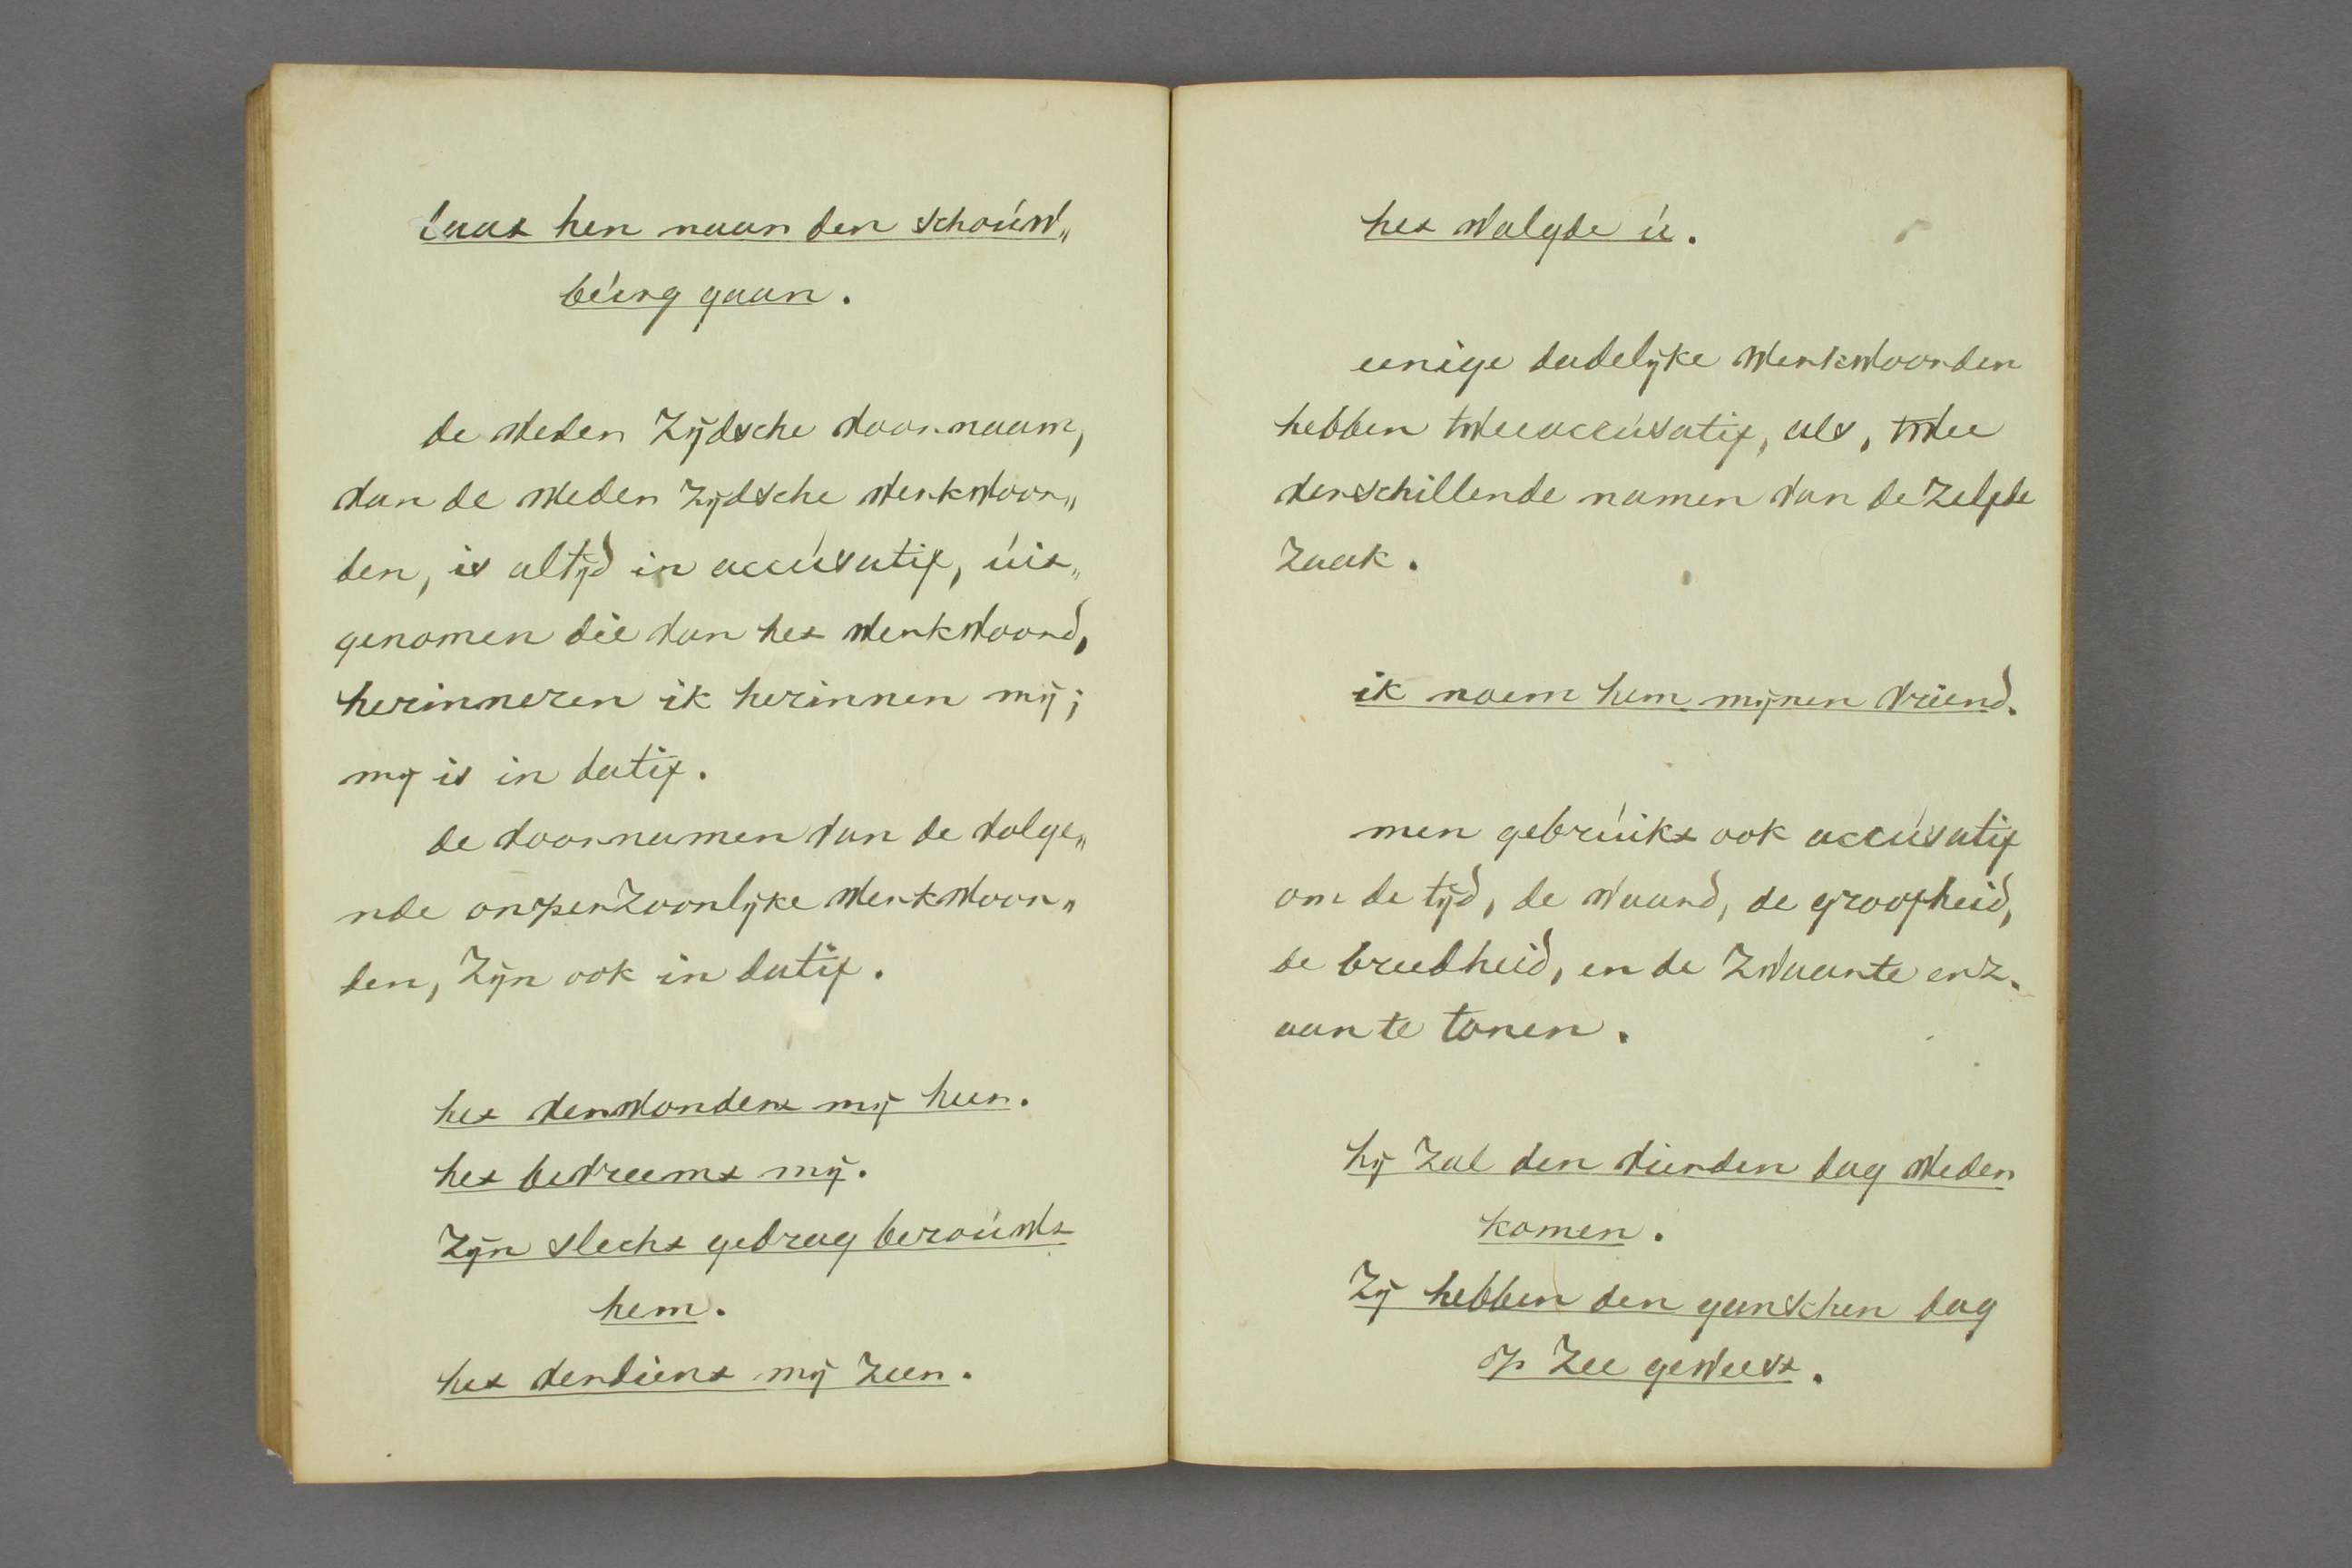 laat hen naar den schouw„
burg gaan.
de weder zydsche voornaam,
van de weder zydsche werkwoor„
den, is altyd in accusatif, uit„
genomen die van het werkwoord,
herinneren ik herinner my;
my is in datif.
de voornamen van de volge„
nde onperzoonlyke werkwoor„
den, zyn ook in datif.
het verwondert my heer.
het bevreemt my.
zyn slecht gedrag berouwt
hem.
het verdient my zeer.
het walgde u.
eenige dadelyke werkwoorden
hebben tweeaccusatif, als, twee
verschillende namen van de zelfde
zaak.
ik noem hem mynen vriend.
men gebruikt ook accusatif
om de tyd, de waard, de groofheid,
de breedheid, en de zwaarte enz.
aan te tonen.
hy zal den vierden dag weder
komen.
Zy hebben den ganschen dag
op zee geweest.